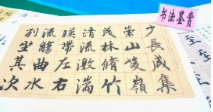 书法鉴赏
少長咸集
崇山峻嶺
茂林脩竹
清流激湍
暎帶左右
流觴曲水
列坐其次